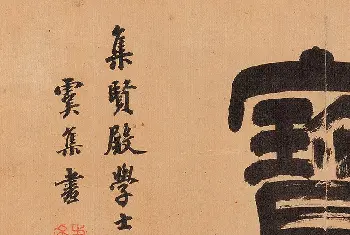 寶
集賢殿學士
虞集書